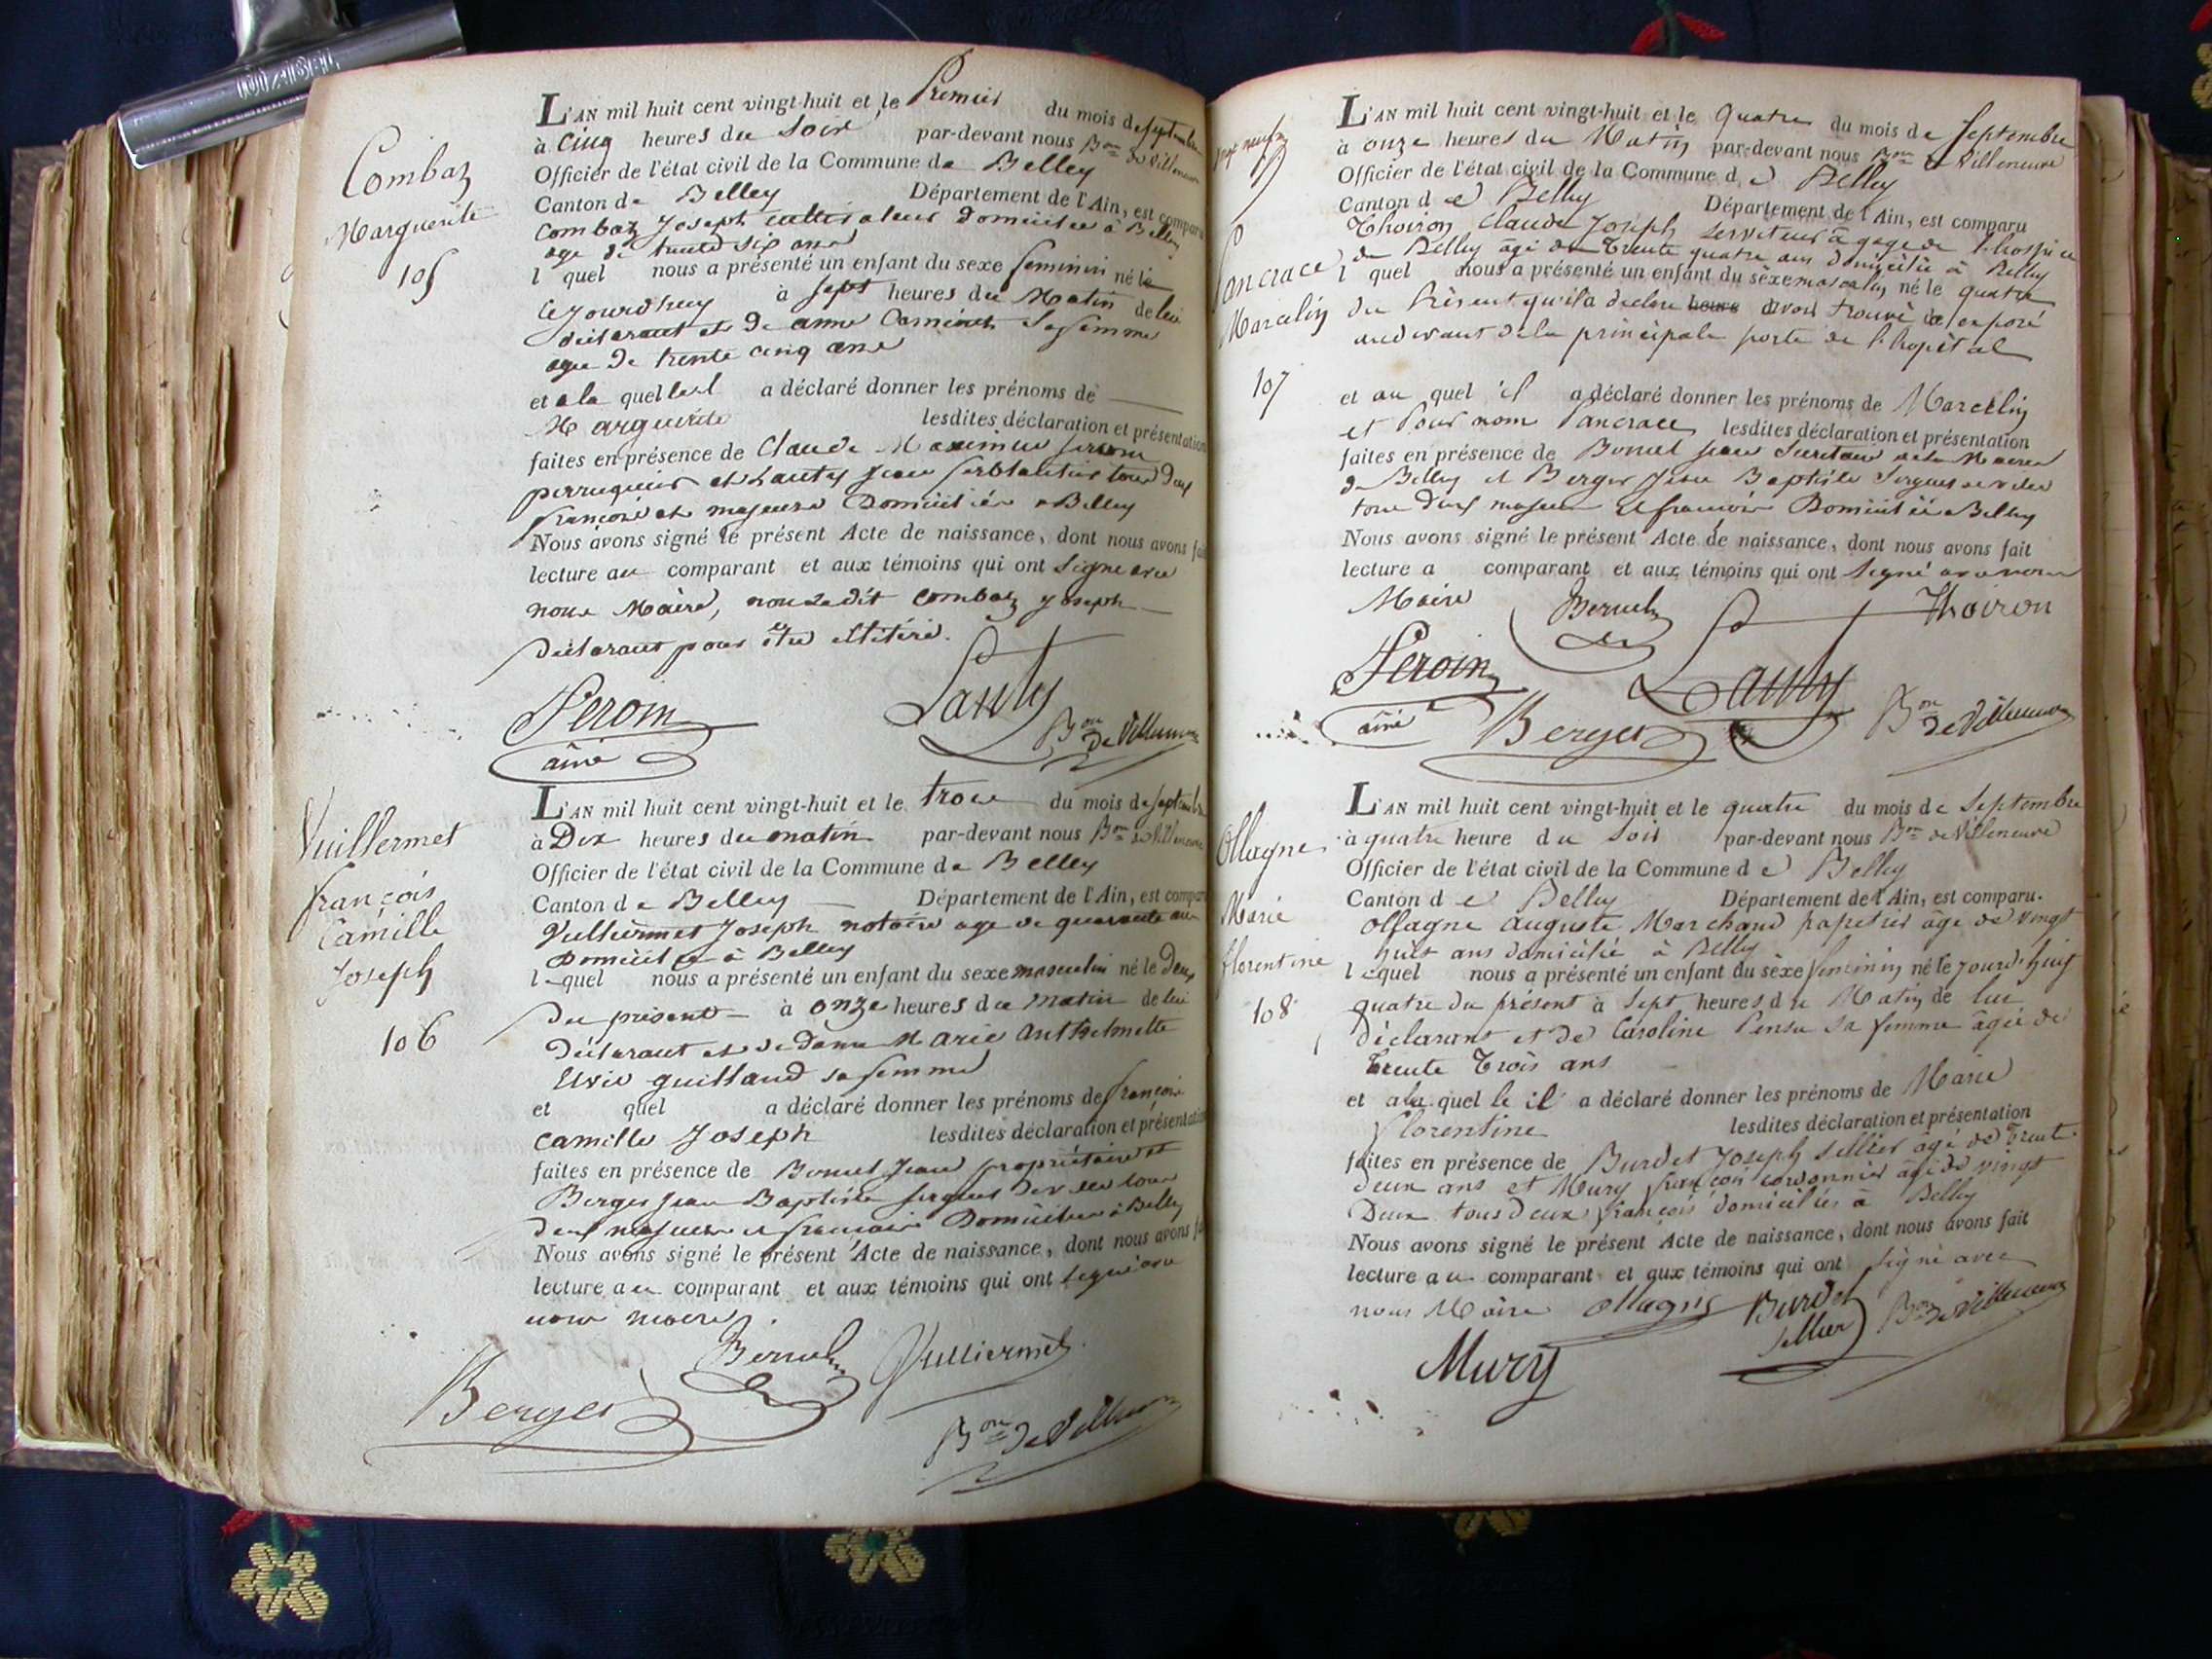 Combaz
Marguerite
105
L'AN mil huit cent vingt-huit et le Premier du mois de septembre
à Cinq heures du Soir par-devant nous Bon de Villeneuve
Officier de l'état civil de la Commune de Belley
Canton de Belley Département de l'Ain, est comparu
Combaz Joseph cultivateur domicilié à Belley
age de trente six ans
l quel nous a présenté un enfant du sexe feminin né le
cejourdhuy à sept heures du Matin de lui
déclarant et de anne sa femme
agee de trente cinq ans
et a la quel a déclaré donner les prénoms de
Marguerite lesdites déclaration et présentation
faites en présence de Claude
perruquier et Lauty jean ferblantier tous deux
françois et majeurs Domiciliés a Belley
Nous avons signé le présent Acte de naissance, dont nous avons fait
lecture au comparant et aux témoins qui ont signe avec
nous Maire, non ledit combaz joseph
déclarant pour être illitéré.
Feroin Lauty
ainé Bon de Villeneuve
Vuillermet
françois
Camille
Joseph
106
L'AN mil huit cent vingt-huit et le trois du mois de septembre
à Dix heures du matin par-devant nous Bon de Villeneuve
Officier de l'état civil de la Commune de Belley
Canton de Belley Département de l'Ain, est comparu
Vulliermet Joseph notaire age de quarante ans
Domicilié à Belley
le quel nous a présenté un enfant du sexe masculin né le deux
du présent à onze heures du matin de lui
déclarant et de dame Marie Anthelmette
guilland sa femme
et quel a déclaré donner les prénoms de françois
Camille Joseph lesdites déclaration et présentation
faites en présence de Jean propriétaire et
Berger jean Baptiste sergent de ville tous
deux majeurs et françois Domiciliés à Belley
Nous avons signé le présent Acte de naissance, dont nous avons fait
lecture au comparant et aux témoins qui ont signé avec
nous maire
Vulliermet
Berger
Bon de Villeneuve
Pancrace
Marcelin
107
L'AN mil huit cent vingt-huit et le quatre du mois de Septembre
à onze heures du Matin par-devant nous Bon de Villeneuve
Officier de l'état civil de la Commune de Belley
Canton de Belley Département de l'Ain, est comparu
Thoiron Claude Joseph serviteur à gage de l'hospice
de Belley âgé de Trente quatre ans domicilié à Belley
l quel nous a présenté un enfant du sexe masculin né le quatre
du présent qu'il a declaré avoir trouvé exposé
audevant de la principale porte de l'hopital
et au quel il a déclaré donner les prénoms de Marcelin
et Pour nom Pancrace lesdites déclaration et présentation
faites en présence de jean Secrétaire de la Mairie
de Belley et Berger Jean Baptiste Sergent de ville
tous deux majeurs et françois Domiciliés a Belley
Nous avons signé le présent Acte de naissance, dont nous avons fait
lecture a comparant et aux témoins qui ont signé avec nous
Maire Thoiron
Feroin Lauty
ainé Berger Bon de Villeneuve
Ollagne
Marie
florentine
108
L'AN mil huit cent vingt-huit et le quatre du mois de Septembre
à quatre heure du Soir par-devant nous Bon de Villeneuve
Officier de l'état civil de la Commune de Belley
Canton de Belley Département de l'Ain, est comparu.
Ollagne Auguste Marchand papetier âgé de vingt
huit ans domicilié à Belley
le quel nous a présenté un enfant du sexe feminin né le jourd'huy
quatre du présent à Sept heures du Matin de lui
déclarant et de Caroline sa femme âgée de
Trente Trois ans
et a la quel le il a déclaré donner les prénoms de Marie
Florentine lesdites déclaration et présentation
faites en présence de Burdet Joseph Sellier âgé de Trente
deux ans et Mury françois cordonnier âgé de vingt
Deux tous deux françois domiciliés à Belley
Nous avons signé le présent Acte de naissance, dont nous avons fait
lecture au comparant et aux témoins qui ont signé avec
nous Maire Ollagne Burdet Bon de Villeneuve
Sellier
Mury